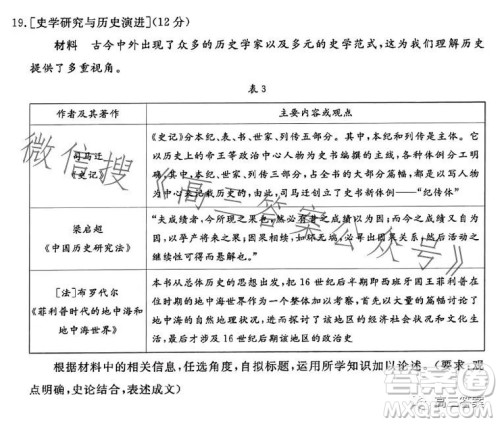 19.[史学研究与历史演进](12分)
材料 古今中外出现了众多的历史学家以及多元的史学范式,这为我们理解历史
提供了多重视角。
表3
作者及其著作
主要内容或观点
司马迁
《史记》
《史记》分本纪、表、书、世家、列传五部分。其中,本纪和列传是主体。它
以历史上的帝王等政治中心人物为史书编撰的主线,各种体例分工明
确,其中,“本纪”“世家”“列传”三部分,占全书的大部分篇幅,都是以写人物
为中心来记载历史的,由此,司马迁创立了史书新体例——“纪传体”
梁启超
《中国历史研究法》
“夫成绩者,今所现之果也,然必有昔之成绩以为之因;而今之成绩又自为
因,以孕产将来之果;因果相续,如环无端,必寻出因果关系,然后活动之
继续性可得而悬解也。”
[法]布罗代尔
《菲利普时代的地中海和
地中海世界》
本书从总体历史的思想出发,把16世纪后半期即西班牙国王菲利普在
位时期的地中海世界作为一个整体加以考察,首先以大量篇幅论述了地
中海的自然地理状况,进而探讨了该地区的经济社会状况和文化生
活,最后才涉及16世纪后期该地区的政治史
根据材料中的相关信息,任选角度,自拟标题,运用所学知识加以论述。(要求:观
点明确,史论结合,表述成文)
微信搜《高三答案公众号》
答案圈
高三答案